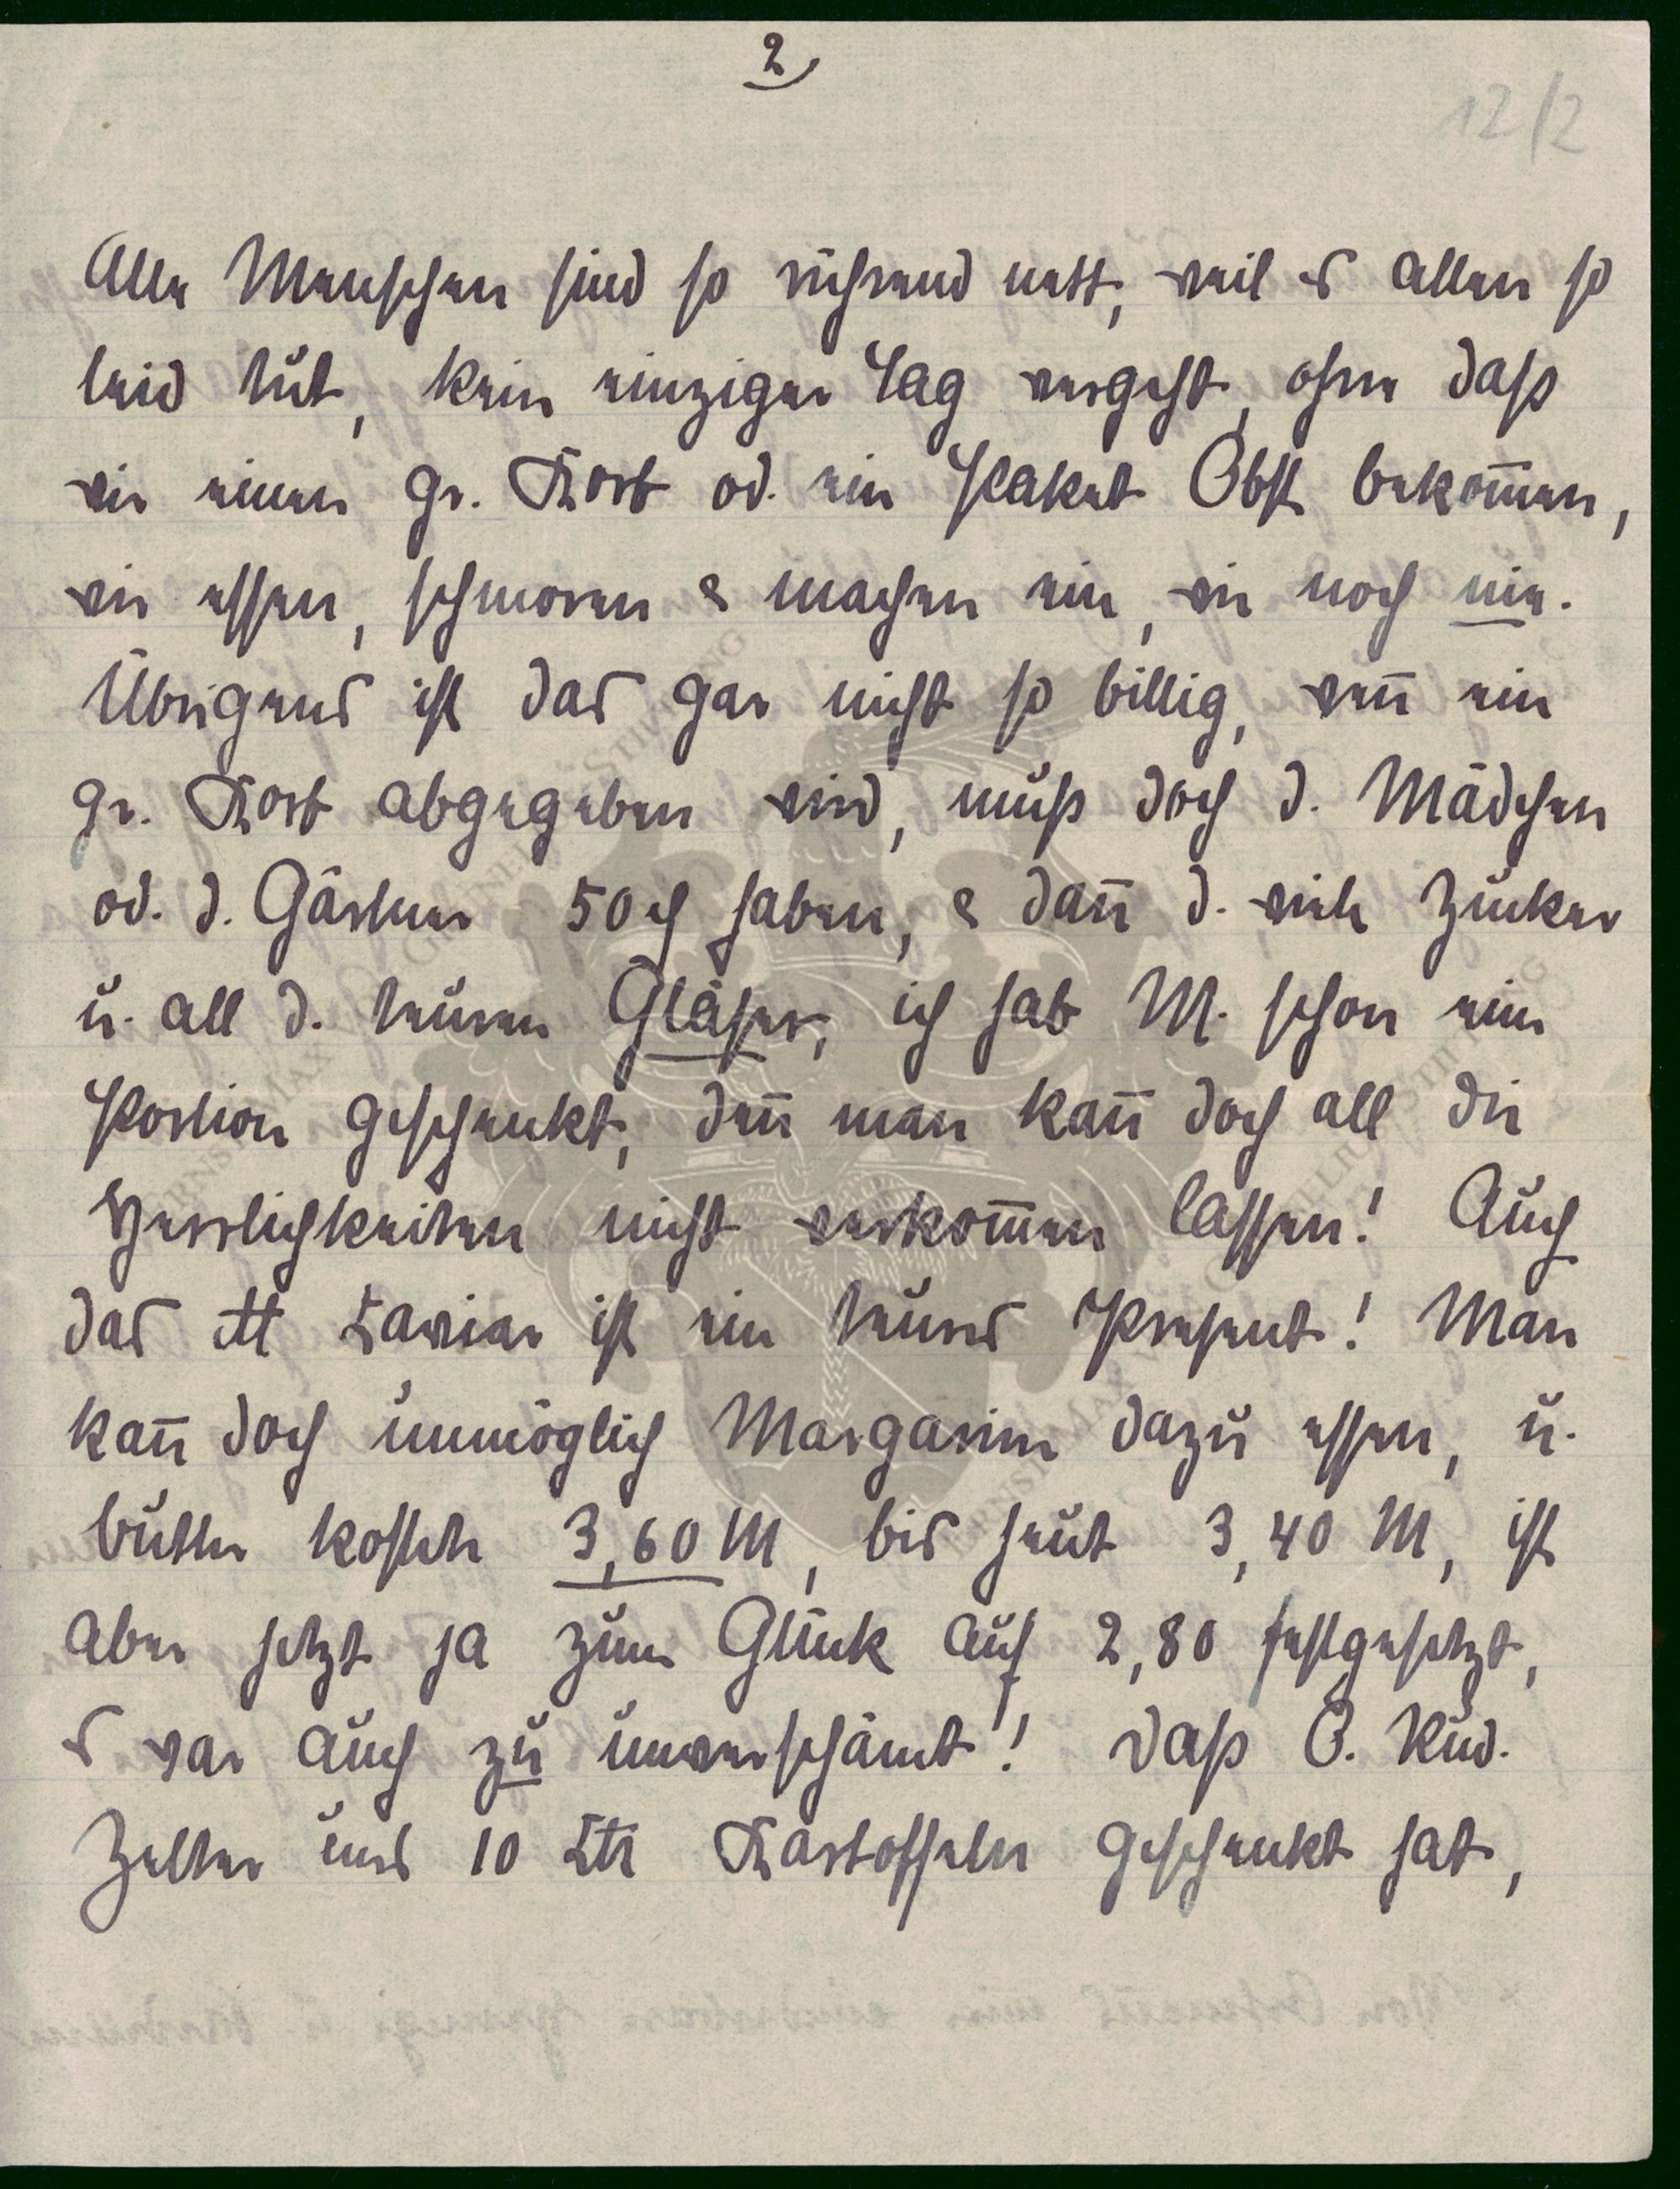 2
12/2
Alle Menschen sind so rührend nett, weil es allen so
leid tut, kein einziger Tag vergeht, ohne daß
wir einen gr. Korb od. ein Paket Obst bekom̅en,
wir essen, schmoren & machen ein, wie noch nie.
Übrigens ist das gar nicht so billig, wen̅ ein
gr. Korb abgegeben wird, muß doch d. Mädchen
od. d. Gärtner 50 ₰ haben, & dan̅ d. viele Zucker
u. all d. teuren Gläser, ich hab M. schon eine
Portion geschenkt, den̅ man kan̅ doch all die
Herrlichkeiten nicht verkom̅en lassen! Auch
das ℔ Caviar ist ein teures Present! Man
kan̅ doch unmöglich Margarine dazu essen, u.
Butter kostete 3,60 M, bis heut 3,40 M, ist
aber jetzt ja zum Glück auf 2,80 festgesetzt,
es war auch zu unverschämt! Daß O. Rud.
Zelter uns 10 Ctr Kartoffeln geschenkt hat,
ERNST MAX VON GRUNELIUS-STIFTUNG